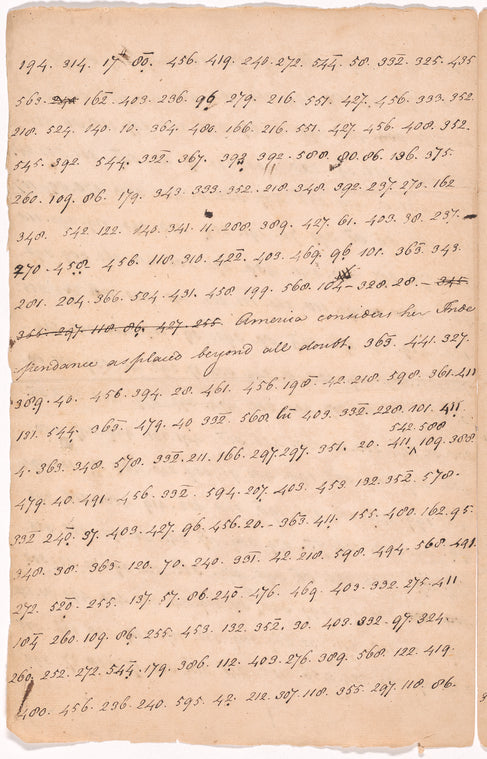 194. 314. 17. 80. 456. 419. 240. 272. 544. 58. 332. 325. 435
563. 162. 403. 236. 96. 279. 216. 551. 427. 456. 333. 352.
218. 524. 140. 10. 364. 480. 166. 216. 551. 427. 456. 408. 352.
545. 392. 544. 332. 367. 393. 392. 588. 80. 86. 136. 375.
260. 109. 86. 179. 343. 333. 352. 218. 348. 392. 237. 270. 162
348. 542. 122. 140. 341. 11. 288. 389. 427. 61. 403. 38. 237.
270. 458. 456. 118. 310. 422. 403. 469. 96. 101. 363. 343.
281. 204. 366. 524. 431. 458. 199. 568. 104. 328. 28. 345
366. 297. 118. 86. 427. 255. America considers her Inde
pendance as placed beyond all doubt. 363. 441. 327.
389. 40. 456. 394. 28. 461. 456. 198. 42. 218. 598. 361. 411
131. 544. 363. 479. 40. 332. 568. 403. 332. 228. 101. 411
542. 588
4. 363. 348. 578. 332. 211. 166. 297. 297. 351. 20. 411. 109. 388
479. 40. 491. 456. 332. 594. 207. 403. 453. 132. 352. 578.
332. 240. 37. 403. 427. 96. 456. 20. 363. 411. 155. 480. 162. 95.
348. 38. 363. 120. 70. 240. 331. 42. 218. 598. 494. 568. 491
272. 520. 255. 137. 57. 86. 240. 476. 469. 403. 332. 275. 411
184. 260. 109. 86. 255. 453. 132. 352. 30. 403. 332. 97. 324.
260. 252. 272. 544. 179. 386. 112. 403. 276. 389. 568. 122. 419.
480. 456. 236. 240. 595. 42. 212. 307. 118. 355. 297. 118. 86.